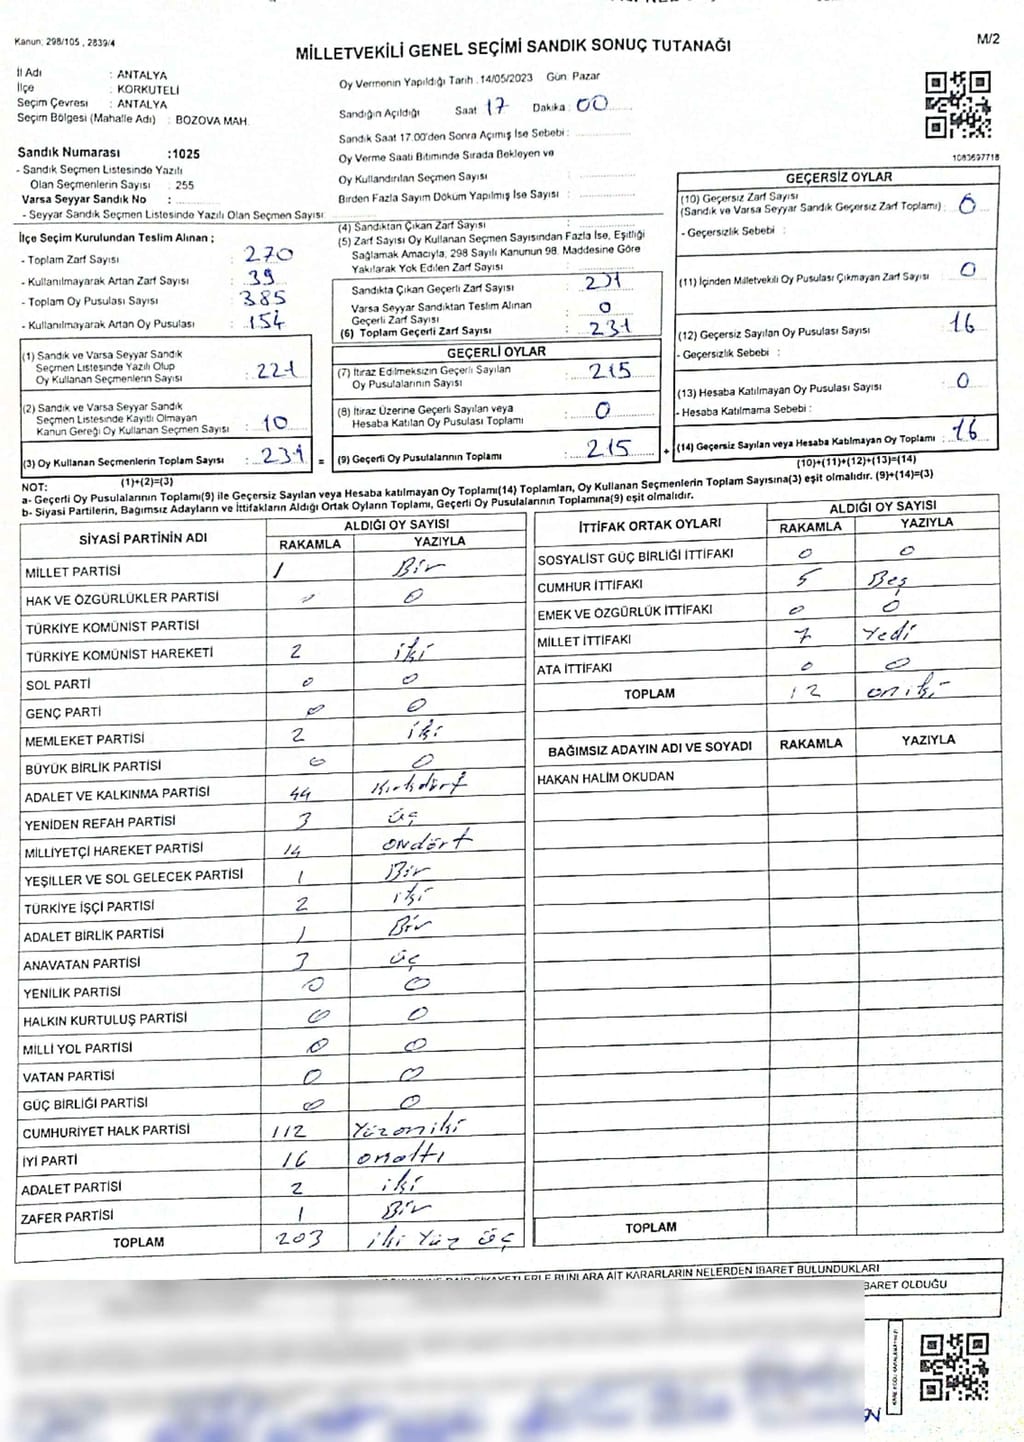 Kanun: 298/105 , 2839/4
MİLLETVEKİLİ GENEL SEÇİMİ SANDIK SONUÇ TUTANAĞI
M/2
İl Adı : ANTALYA
İlçe : KORKUTELİ
Seçim Çevresi : ANTALYA
Seçim Bölgesi (Mahalle Adı) : BOZOVA MAH.
Oy Vermenin Yapıldığı Tarih :14/05/2023 Gün: Pazar
Sandığın Açıldığı Saat 17 Dakika : 00
Sandık Saat 17.00'den Sonra Açımış İse Sebebi :
Oy Verme Saati Bitiminde Sırada Bekleyen ve
Oy Kullandırılan Seçmen Sayısı :
Birden Fazla Sayım Döküm Yapılmış İse Sayısı :
1083697718
Sandık Numarası :1025
- Sandık Seçmen Listesinde Yazılı
Olan Seçmenlerin Sayısı : 255
Varsa Seyyar Sandık No :
- Seyyar Sandık Seçmen Listesinde Yazılı Olan Seçmen Sayısı:
İlçe Seçim Kurulundan Teslim Alınan ;
- Toplam Zarf Sayısı : 270
- Kullanılmayarak Artan Zarf Sayısı : 39
- Toplam Oy Pusulası Sayısı : 385
- Kullanılmayarak Artan Oy Pusulası : 154
(1) Sandık ve Varsa Seyyar Sandık
Seçmen Listesinde Yazılı Olup
Oy Kullanan Seçmenlerin Sayısı : 221
(2) Sandık ve Varsa Seyyar Sandık
Seçmen Listesinde Kayıtlı Olmayan
Kanun Gereği Oy Kullanan Seçmen Sayısı : 10
(3) Oy Kullanan Seçmenlerin Toplam Sayısı : 231 =
(1)+(2)=(3)
(4) Sandıktan Çıkan Zarf Sayısı :
(5) Zarf Sayısı Oy Kullanan Seçmen Sayısından Fazla İse, Eşitliği
Sağlamak Amacıyla, 298 Sayılı Kanunun 98. Maddesine Göre
Yakılarak Yok Edilen Zarf Sayısı :
Sandıkta Çıkan Geçerli Zarf Sayısı : 231
Varsa Seyyar Sandıktan Teslim Alınan
Geçerli Zarf Sayısı : 0
(6) Toplam Geçerli Zarf Sayısı : 231
GEÇERLİ OYLAR
(7) İtiraz Edilmeksizin Geçerli Sayılan
Oy Pusulalarının Sayısı : 215
(8) İtiraz Üzerine Geçerli Sayılan veya
Hesaba Katılan Oy Pusulası Toplamı : 0
(9) Geçerli Oy Pusulalarının Toplamı : 215 +
GEÇERSİZ OYLAR
(10) Geçersiz Zarf Sayısı
(Sandık ve Varsa Seyyar Sandık Geçersiz Zarf Toplamı) : 0
- Geçersizlik Sebebi :
(11) İçinden Milletvekili Oy Pusulası Çıkmayan Zarf Sayısı : 0
(12) Geçersiz Sayılan Oy Pusulası Sayısı : 16
- Geçersizlik Sebebi :
(13) Hesaba Katılmayan Oy Pusulası Sayısı : 0
- Hesaba Katılmama Sebebi :
(14) Geçersiz Sayılan veya Hesaba Katılmayan Oy Toplamı : 16
(10)+(11)+(12)+(13)=(14)
NOT:
a- Geçerli Oy Pusulalarının Toplamı(9) ile Geçersiz Sayılan veya Hesaba katılmayan Oy Toplamı(14) Toplamları, Oy Kullanan Seçmenlerin Toplam Sayısına(3) eşit olmalıdır. (9)+(14)=(3)
b- Siyasi Partilerin, Bağımsız Adayların ve İttifakların Aldığı Ortak Oyların Toplamı, Geçerli Oy Pusulalarının Toplamına(9) eşit olmalıdır.
SİYASİ PARTİNİN ADI ALDIĞI OY SAYISI
RAKAMLA YAZIYLA
MİLLET PARTİSİ 1 Bir
HAK VE ÖZGÜRLÜKLER PARTİSİ 0 0
TÜRKİYE KOMÜNİST PARTİSİ
TÜRKİYE KOMÜNİST HAREKETİ 2 iki
SOL PARTİ 0 0
GENÇ PARTİ 0 0
MEMLEKET PARTİSİ 2 iki
BÜYÜK BİRLİK PARTİSİ 0 0
ADALET VE KALKINMA PARTİSİ 44 Kırkdört
YENİDEN REFAH PARTİSİ 3 üç
MİLLİYETÇİ HAREKET PARTİSİ 14 ondört
YEŞİLLER VE SOL GELECEK PARTİSİ 1 Bir
TÜRKİYE İŞÇİ PARTİSİ 2 iki
ADALET BİRLİK PARTİSİ 1 Bir
ANAVATAN PARTİSİ 3 üç
YENİLİK PARTİSİ 0 0
HALKIN KURTULUŞ PARTİSİ 0 0
MİLLİ YOL PARTİSİ 0 0
VATAN PARTİSİ 0 0
GÜÇ BİRLİĞİ PARTİSİ 0 0
CUMHURİYET HALK PARTİSİ 112 Yüzoniki
İYİ PARTİ 16 onaltı
ADALET PARTİSİ 2 iki
ZAFER PARTİSİ 1 Bir
TOPLAM 203 iki Yüz üç
İTTİFAK ORTAK OYLARI ALDIĞI OY SAYISI
RAKAMLA YAZIYLA
SOSYALİST GÜÇ BİRLİĞİ İTTİFAKI 0 0
CUMHUR İTTİFAKI 5 Beş
EMEK VE ÖZGÜRLÜK İTTİFAKI 0 0
MİLLET İTTİFAKI 7 Yedi
ATA İTTİFAKI 0 0
TOPLAM 12 oniki
BAĞIMSIZ ADAYIN ADI VE SOYADI RAKAMLA YAZIYLA
HAKAN HALİM OKUDAN
TOPLAM
ŞİKAYETLERLE BUNLARA AİT KARARLARIN NELERDEN İBARET BULUNDUKLARI
BARET OLDUĞU